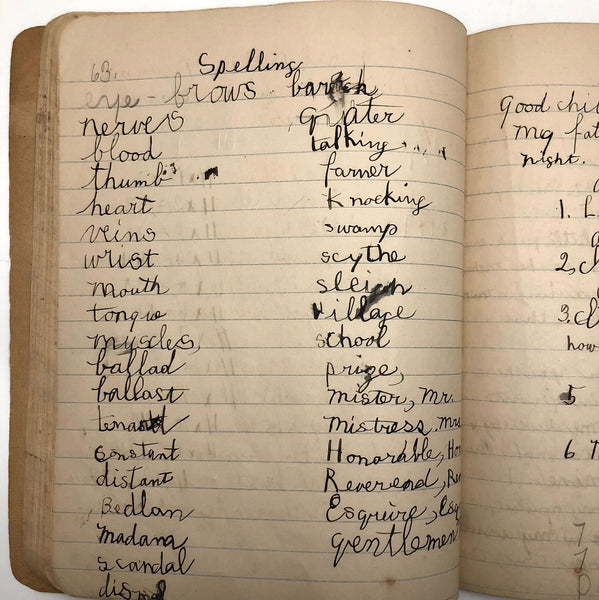 63. Spelling
eye-brows
nerves
blood
thumb
heart
veins
wrist
mouth
tongue
muscles,
ballad
ballast
tenant
constant
distant
Bedlam
Madam
scandal
dismal
Grater
talking
farmer
Knocking
swamp
scythe
sleigh
village
school
prize,
Mister, Mr.
Mistress. Mrs
Honorable, Hon
Reverend, Re
Esquire, Esq
gentlemen
Good chi
my fat
night.
1.
2.
3.
how
5
6